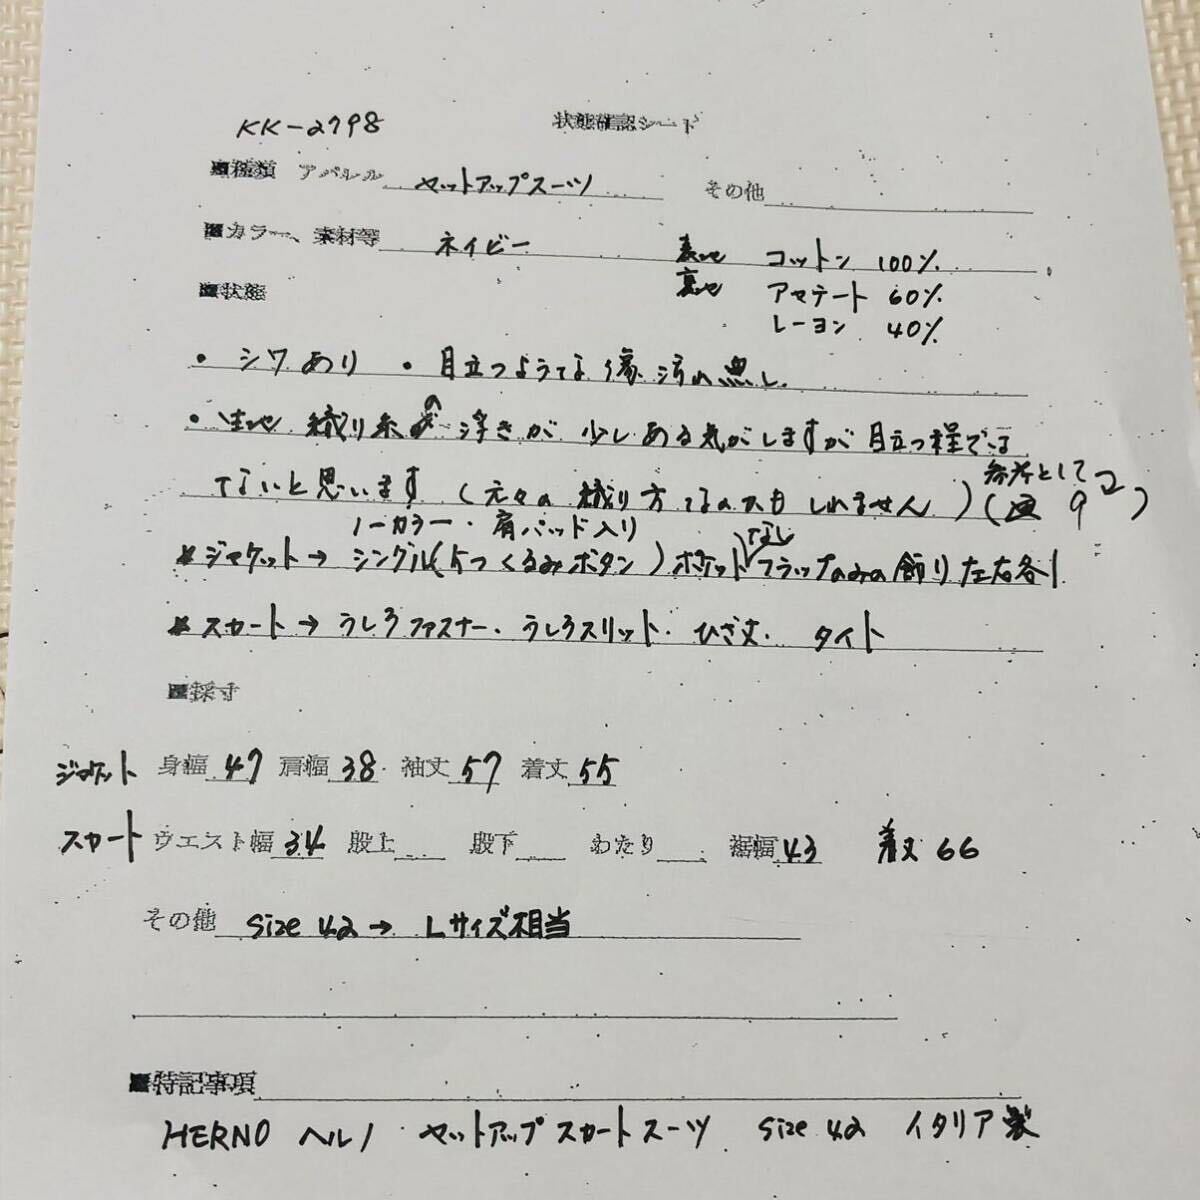 KK-2798 状態確認シート
■種類 アパレル セットアップスーツ その他
■カラー、素材等 ネイビー 表地 コットン 100%
■状態 裏地 アセテート 60%
レーヨン 40%
・シワあり ・目立つような傷 汚れ無し
・生地 織り糸の浮きが 少しある気がしますが 目立つ程では
ないと思います (元々の織り方なのかもしれません) 参考として
ノーカラー・肩パッド入り
*ジャケット→ シングル(くるみボタン) ポケットなし フラップのみの飾り 左右各1
*スカート→ うしろファスナー・うしろスリット・ひざ丈・ タイト
■採寸
ジャケット 身幅 47 肩幅 38 袖丈 57 着丈 55
スカート ウエスト幅 34 股上 股下 わたり 裾幅 43 着丈 66
その他 size 42→ Lサイズ相当
■特記事項
HERNO ヘルノ セットアップスカートスーツ size 42 イタリア製